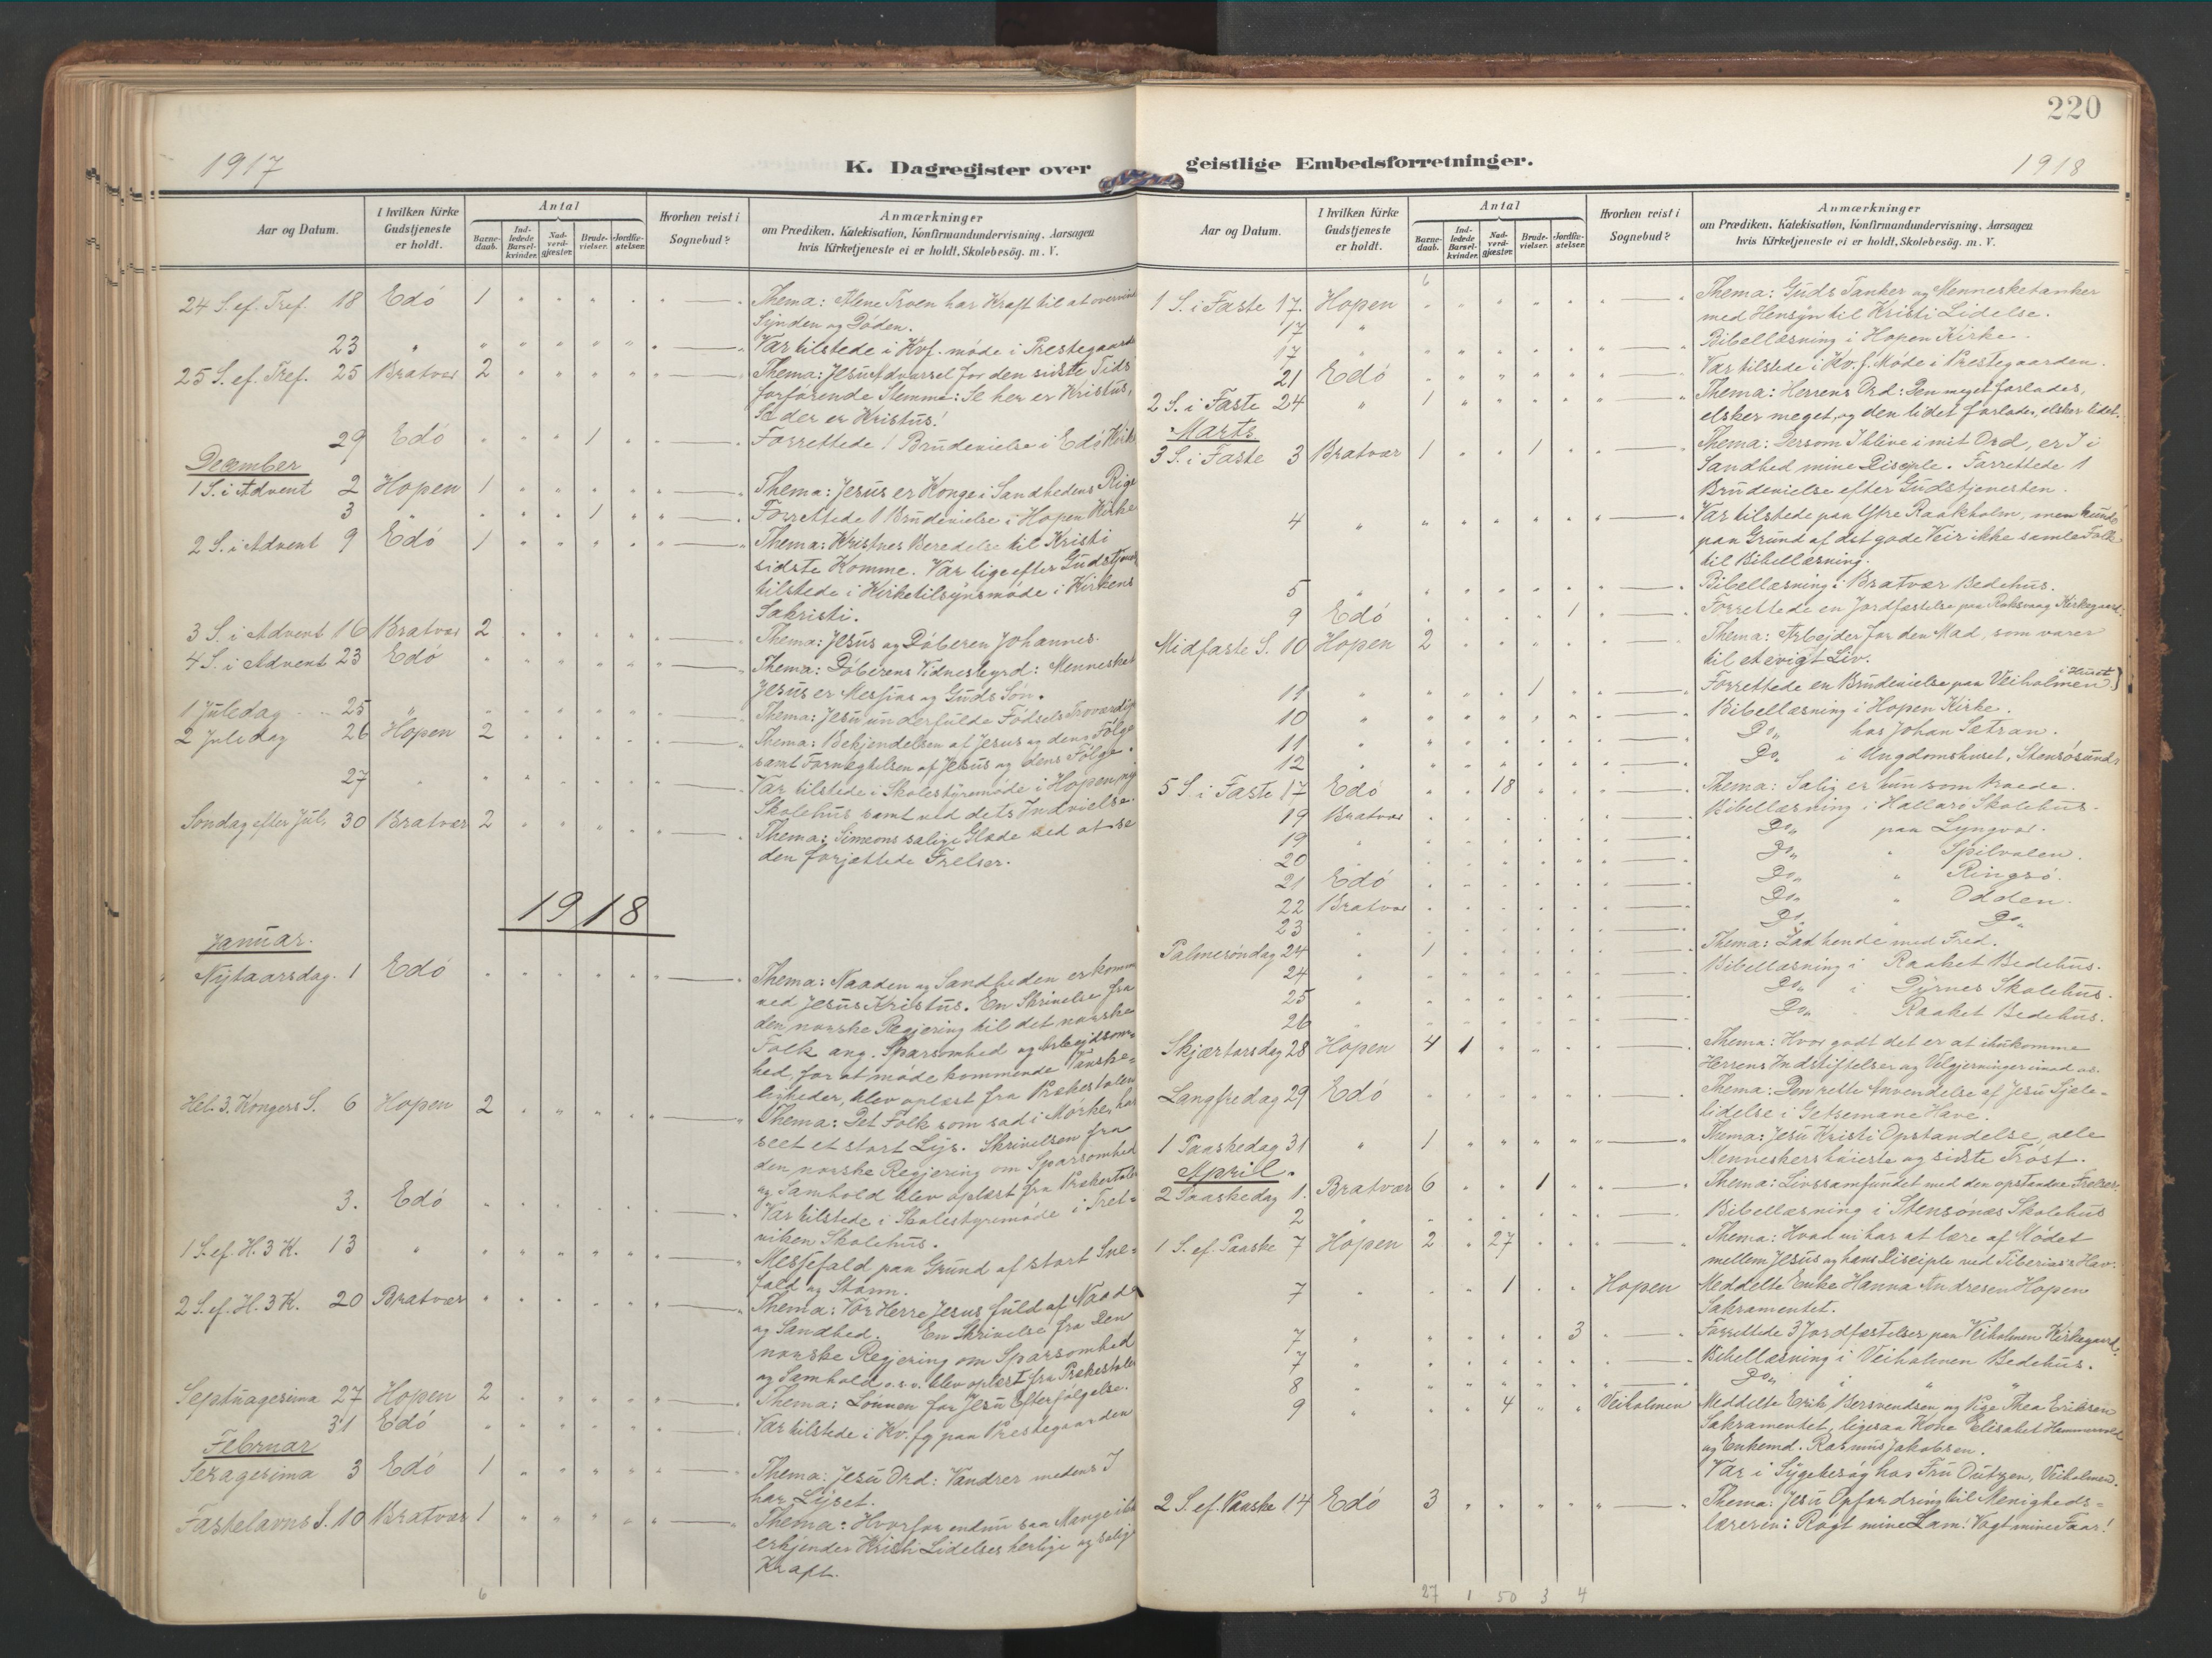 220
1917
K. Dagregister over
geistlige Embedsforretninger.
1918
Aar og Datum.
I hvilken Kirke Gudstjeneste er holdt.
Antal
Barne-daab.
Ind-ledede Barsel-kvinder.
Nad-verd-gjæster.
Brude-vielser.
Jordfæ-stelser.
Hvorhen reist i Sognebud?
Anmærkninger
om Prædiken, Katekisation, Konfirmandundervisning. Aarsagen
hvis Kirketjeneste ei er holdt, Skolebesøg. m. V.
24 S. ef. Tref. 18 Edö 1 Thema: Alene Troen har Kraft til at overvinde
Synden og Döden.
23 " Var tilstede i Kvf. möde i Prestegaarden
25 S. ef. Tref. 25 Bratvær 2 Thema: Jesu Advarsel for den sidste Tids
forförende Stemme: Se her er Kristus,
Se der er Kristus!
29 Edö 1 Forrettede 1 Brudevielse i Edö Kirke
December
1 S. i Advent 2 Hopen 1 Thema: Jesus er Konge i Sandhedens Rige
3 " 1 Forrettede 1 Brudevielse i Hopen Kirke
2 S. i Advent 9 Edö 1 Thema: Kristnes Beredelse til Kristi
sidste Komme. Var lige efter Gudstjen
tilstede i Kirketilsynsmöde i Kirkens
Sakristi.
3 S. i Advent 16 Bratvær 2 Thema: Jesus og Döberen Johannes.
4 S. i Advent 23 Edö Thema: Döberens Vidnesbyrd: Mennesket
Jesus er Messias og Guds Sön.
1 Juledag 25 " Thema: Jesu underfulde Födsels Troværdig
2 Juledag 26 Hopen 2 Thema: Bekjendelsen af Jesus og dens Fölge
samt Fornægtelsen af Jesus og dens Fölge.
27 " Var tilstede i Skolestyremöde i Hopen nye
Skolehus samt ved dets Indvielse.
Söndag efter Jul. 30 Bratvær 2 Thema: Simeons salige Glæde ved at se
den forjættede Frelser.
1918
Januar.
Nytaarsdag. 1 Edö Thema: Naaden og Sandheden er komm
ved Jesus Kristus. En Skrivelse fra
den norske Regjering til det norske
Folk ang. Sparsomhed og Arbeidsom-
hed, for at möde kommende Vanske-
ligheder, blev oplæst fra Prækestolen
Hel. 3. Kongers S. 6 Hopen 2 Thema: Det Folk som sad i Mörke, har
seet et stort Lys. Skrivelsen fra
den norske Regjering om Sparsomhed
og Samhold blev oplæst fra Prækestolen
3. Edö Var tilstede i Skolestyremöde i Tret-
viken Skolehus.
1 S. ef. H. 3 K. 13 " Messefald paa Grund af stort Sne-
fald og Storm.
2 S. ef. H. 3 K. 20 Bratvær Thema: Vor Herre Jesus fuld af Naade
og Sandhed. En Skrivelse fra Den
norske Regjering om Sparsomhed
og Samhold o.s.v. blev oplæst fra Prækestolen
Septuagesima 27 Hopen 2 Thema: Lönnen for Jesu Efterfölgelse.
31 Edö Var tilstede i Kv. fg paa Prestegaarden
Februar
Sexagesima 3 Edö 1 Thema: Jesu Ord: Vandrer medens I
har Lyset.
Fastelavns S. 10 Bratvær 1 Thema: Hvorfor endnu saa Mange ikke
erkjender Kristi Lidelses herlige og salige
Kraft.
6
Aar og Datum.
I hvilken Kirke Gudstjeneste er holdt.
Antal
Barne-daab.
Ind-ledede Barsel-kvinder.
Nad-verd-gjæster.
Brude-vielser.
Jordfæ-stelser.
Hvorhen reist i Sognebud?
Anmærkninger
om Prædiken, Katekisation, Konfirmandundervisning. Aarsagen
hvis Kirketjeneste ei er holdt, Skolebesøg. m. V.
6
1 S. i Faste 17. Hopen Thema: Guds Tanker og Mennesketanker
med Hensyn til Kristi Lidelse.
17 " Bibellæsning i Hopen Kirke.
17 " Var tilstede i Kv. f. Möde i Prestegaarden.
21 Edö
2 S. i Faste 24 " 1 Thema: Herrens Ord: Den meget forlades,
elsker meget, og den lidet forlades, elsker lidet.
Marts
3 S. i Faste 3 Bratvær 1 1 Thema: Dersom I blive i mit Ord, er I i
Sandhed mine Disciple. Forrettede 1
Brudevielse efter Gudstjenesten.
4 " Var tilstede paa Ytre Raakholm, men kunde
paa Grund af det gode Veir ikke samle Folk
til Bibellæsning.
5 " Bibellæsning i Bratvær Bedehus.
9 Edö 1 Forrettede en Jordfæstelse paa Roksvaag Kirkegaard.
Midfaste S. 10 Hopen 2 Thema: Arbejder for den Mad, som varer
til et evigt Liv.
11 " 1 Forrettede en Brudevielse paa Veiholmen i Huset)
10 " Bibellæsning i Hopen Kirke.
11 " Do„ hos Johan Sætran.
12 " Do„ i Ungdomshuset, Stensösund
5 S. i Faste 17 Edö 18 Thema: Salig er hun som troede.
19 Bratvær Bibellæsning i Hallarö Skolehus.
19 " Do„ paa Lyngvær.
20 " Do„ " Spilvalen.
21 Edö Do„ " Ringsö.
22 Bratvær Do„ " Odden.
23 " Do. " Do„
Palmesöndag 24 " 1 Thema: Lad hende med Fred.
24 " Bibellæsning i Raaket Bedehus.
25 " Do„ i Dyrnes Skolehus.
26 " Do„ " Raaket Bedehus.
Skjærtorsdag 28 Hopen 4 1 Thema: Hvor godt det er at ihukomme
Herrens Indstiftelser og Velgjerninger imod os.
Langfredag 29 Edö Thema: Den rette Anvendelse af Jesu Sjæle-
lidelse i Getsemane Have.
1 Paaskedag 31 " 1 Thema: Jesu Kristi Opstandelse, alle
Menneskers höieste og sidste Tröst.
April.
2 Paaskedag 1. Bratvær 6 1 Thema: Livssamfundet med den opstandne Frelser.
2 " Bibellæsning i Stensönæs Skolehus
1 S. ef. Paaske 7 Hopen 2 27 Thema: Hvad vi har at lære af Mödet
mellem Jesus og hans Disciple ved Tiberias's Hav.
7 " 1 Hopen Meddelte Enke Hanna Andresen Hopen
Sakramentet.
7 " 3 Forrettede 3 Jordfæstelser paa Veiholmen Kirkegaard.
7 " Bibellæsning i Veiholmen Bedehus.
8 " Do„ " "
9 " 4 Veiholmen Meddelte Erik Bersvendsen og Pige Thea Eriksen
Sakramentet, ligesaa Kone Elisabet Hammervold
og Enkemd. Rasmus Jakobsen.
Var i Sygebesög hos Fru Outzen, Veiholmen.
2 S. ef. Paaske 14 Edö 3 Thema: Jesu Opfordring til Menigheds-
læreren: Rögt mine Lam! Vogt mine Faar!
27 1 50 3 4